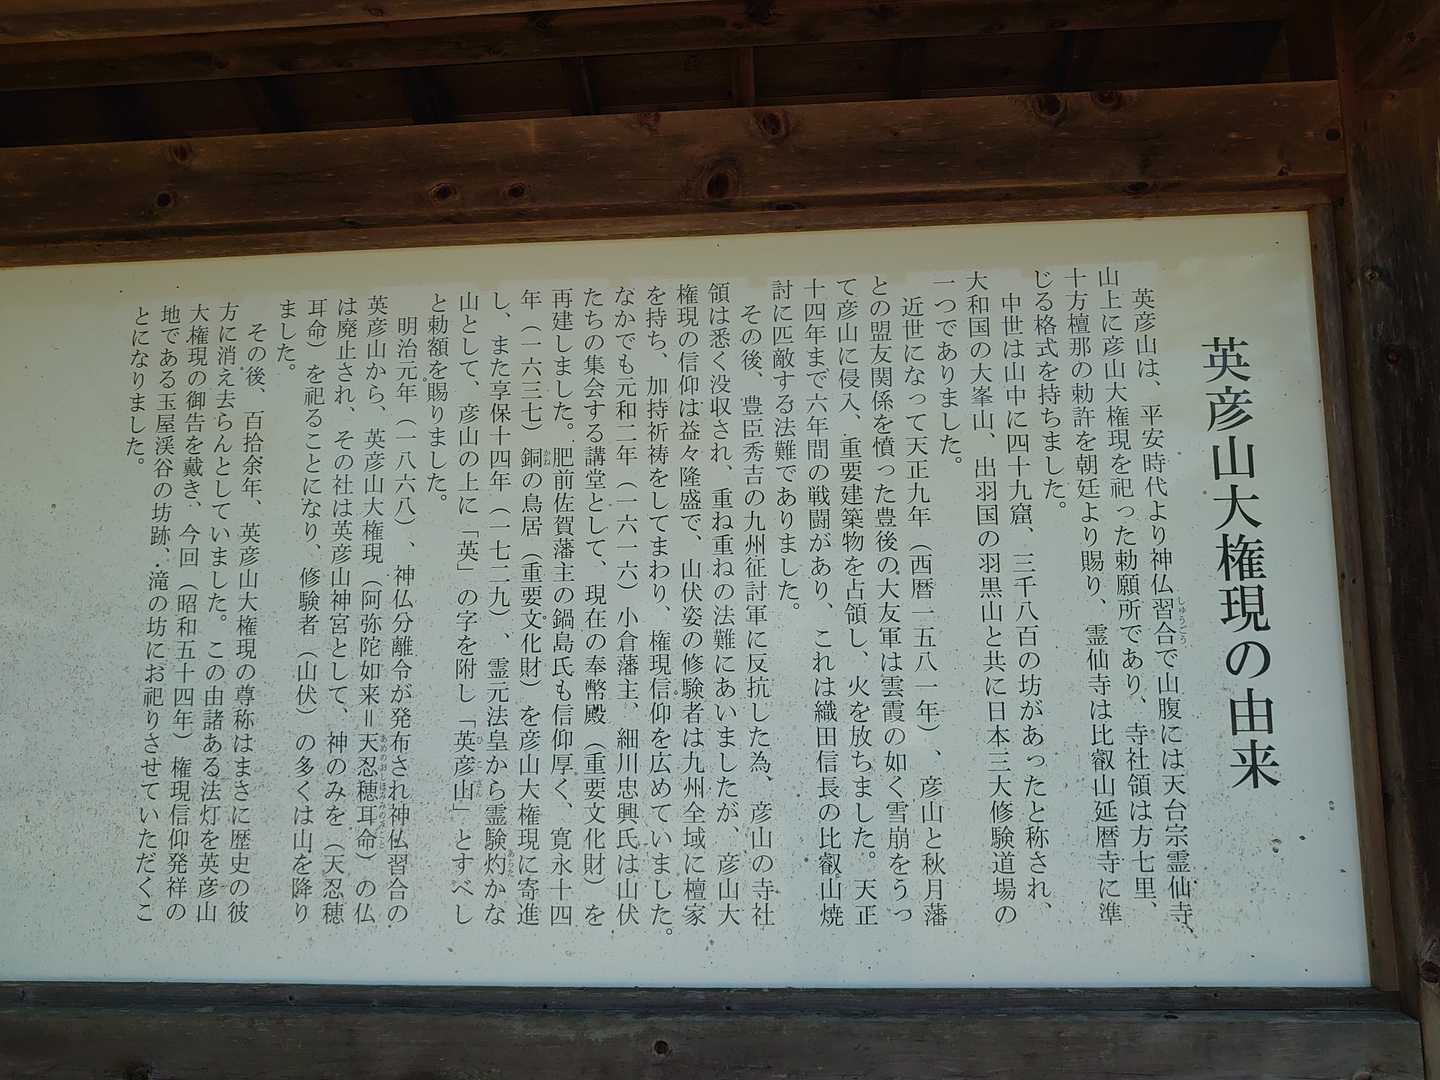 英彦山大権現の由来
英彦山は、平安時代より神仏習合で山腹には天台宗霊仙寺、
しゅうごう
山上に彦山大権現を祀った勅願所であり、寺社領は方七里、
十方檀那の勅許を朝廷より賜り、霊仙寺は比叡山延暦寺に準
じる格式を持ちました。
中世は山中に四十九窟、三千八百の坊があったと称され、
大和国の大峯山、出羽国の羽黒山と共に日本三大修験道場の
一つでありました。
近世になって天正九年（西暦一五八一年）、彦山と秋月藩
との盟友関係を憤った豊後の大友軍は雲霞の如く雪崩をうっ
て彦山に侵入、重要建築物を占領し、火を放ちました。天正
十四年まで六年間の戦闘があり、これは織田信長の比叡山焼
討に匹敵する法難でありました。
その後、豊臣秀吉の九州征討軍に反抗した為、彦山の寺社
領は悉く没収され、重ね重ねの法難にあいましたが、彦山大
権現の信仰は益々隆盛で、山伏姿の修験者は九州全域に檀家
を持ち、加持祈祷をしてまわり、権現信仰を広めていました。
なかでも元和二年（一六一六）小倉藩主、細川忠興氏は山伏
たちの集会する講堂として、現在の奉幣殿（重要文化財）を
再建しました。肥前佐賀藩主の鍋島氏も信仰厚く、寛永十四
年（一六三七）銅の鳥居（重要文化財）を彦山大権現に寄進
かね
し、また享保十四年（一七二九）、霊元法皇から霊験灼かな
あらた
山として、彦山の上に「英」の字を附し「英彦山」とすべし
ひこさん
と勅額を賜りました。
明治元年（一八六八）、神仏分離令が発布され神仏習合の
英彦山から、英彦山大権現（阿弥陀如来＝天忍穂耳命）の仏
あめのおしほみみのみこと
は廃止され、その社は英彦山神宮として、神のみを（天忍穂
耳命）を祀ることになり、修験者（山伏）の多くは山を降り
ました。
その後、百拾余年、英彦山大権現の尊称はまさに歴史の彼
方に消え去らんとしていました。この由諸ある法灯を英彦山
大権現の御告を戴き、今回（昭和五十四年）権現信仰発祥の
地である玉屋渓谷の坊跡、滝の坊にお祀りさせていただくこ
とになりました。